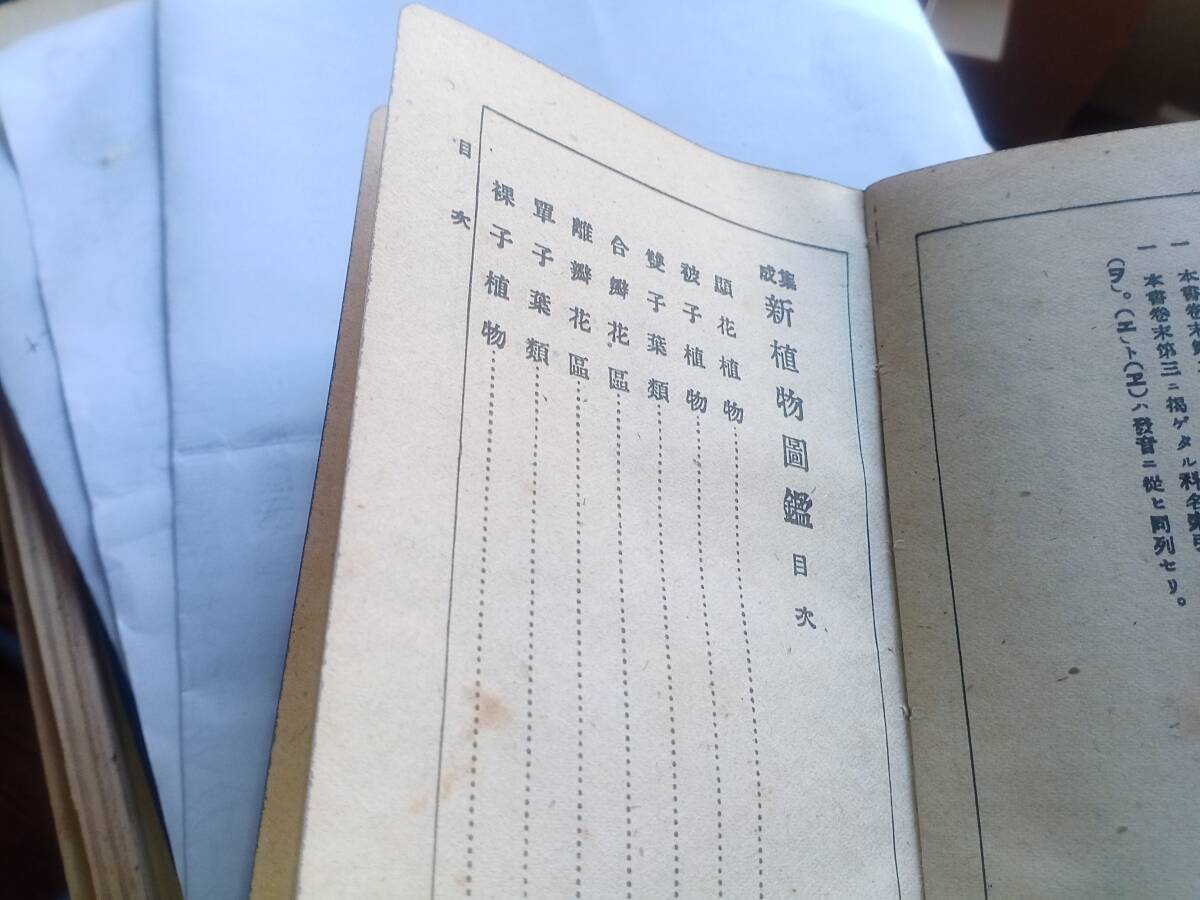 一 本書卷末第三ニ揭ゲタル科名索引
(ヲ)。(エ)ト(ヱ)ハ發音ニ從ヒ同列セリ。
集成 新植物圖鑑 目次
顯花植物
被子植物
雙子葉類
合瓣花區
離瓣花區
單子葉類
裸子植物
目次